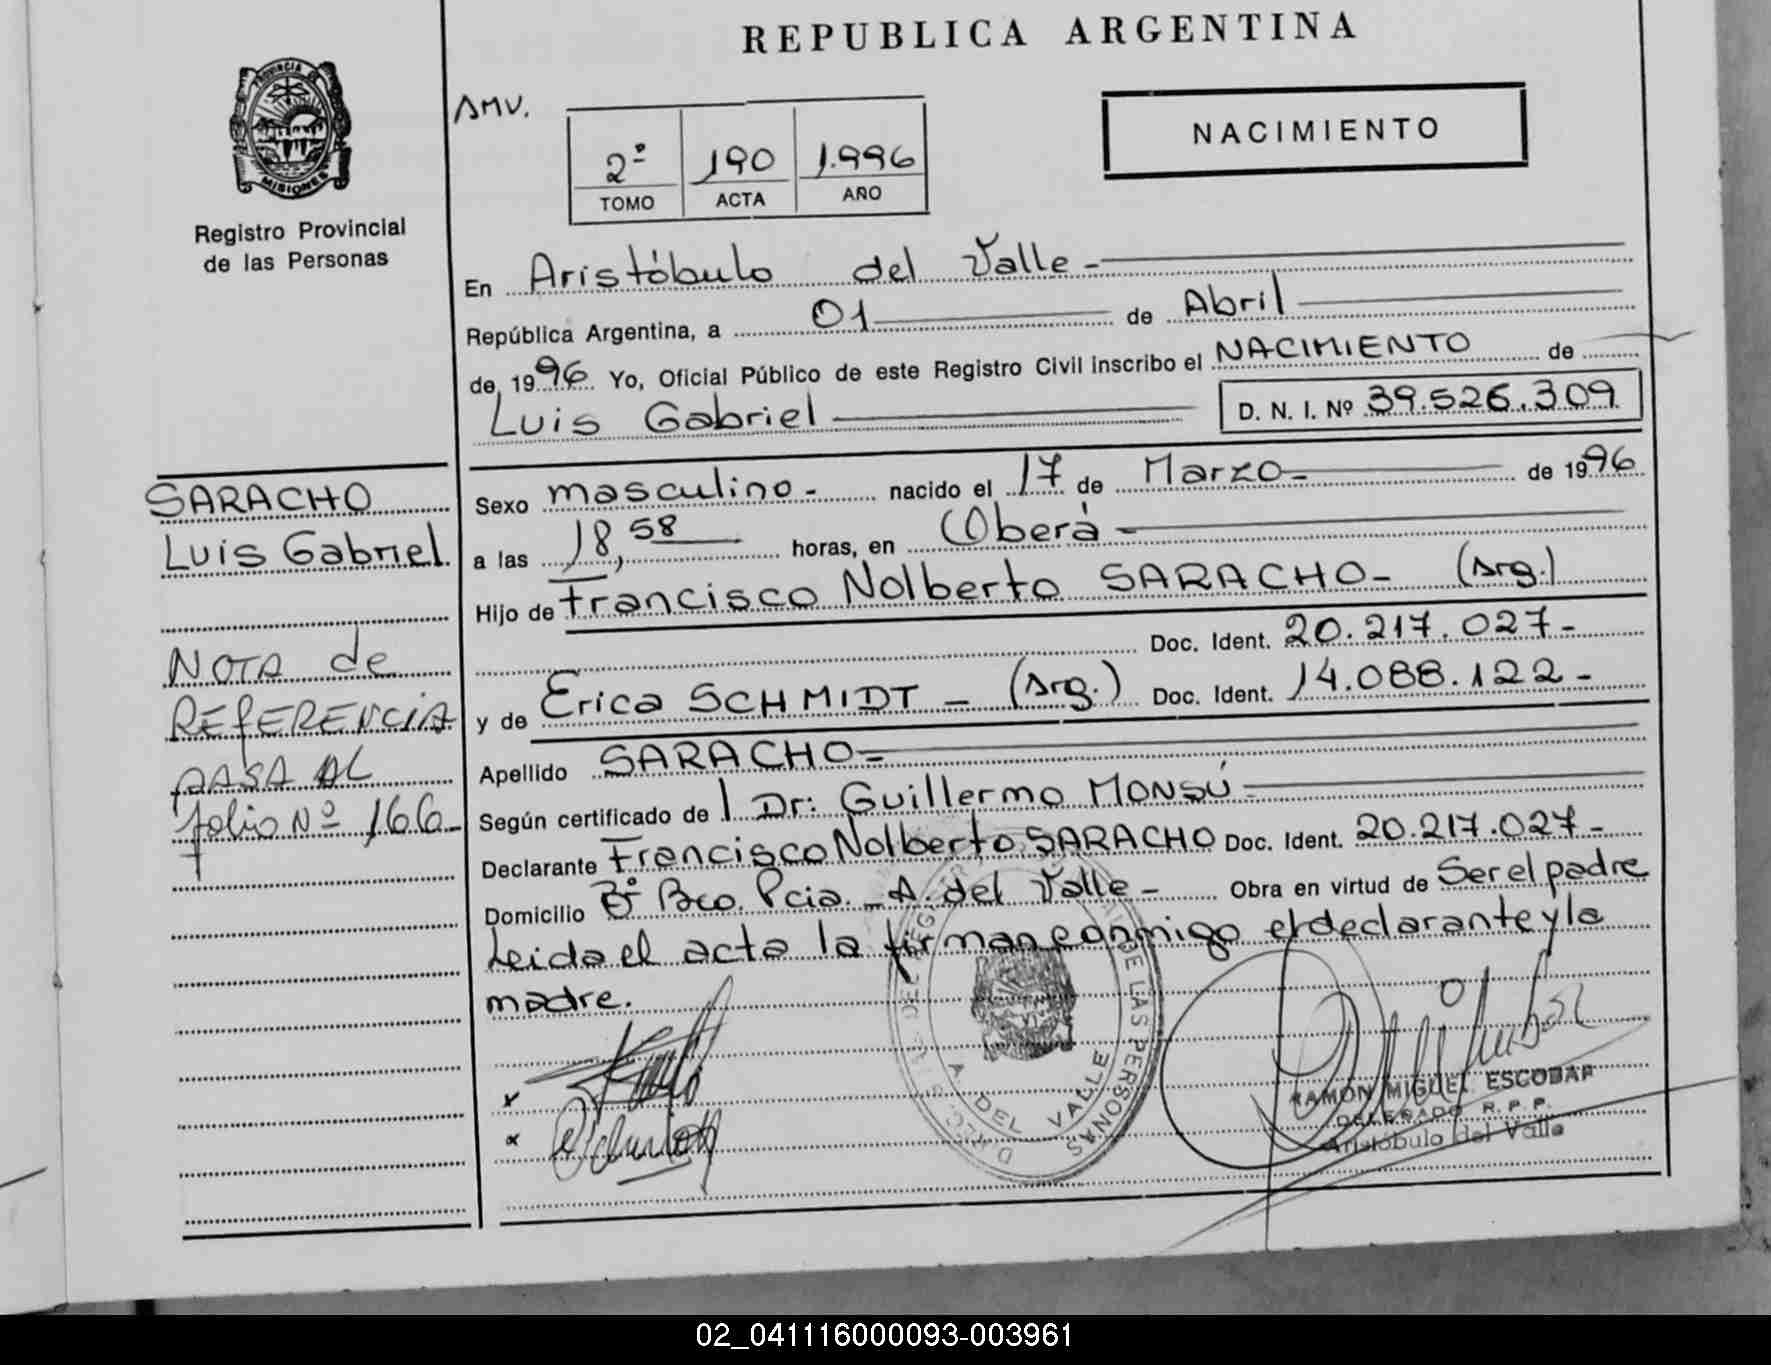 REPUBLICA ARGENTINA
PROVINCIA DE
MISIONES
Registro Provincial
de las Personas
AMV.
2º 190 1.996
TOMO ACTA AÑO
NACIMIENTO
En Aristóbulo del Valle -
República Argentina, a 01 de Abril
de 1996 Yo, Oficial Público de este Registro Civil inscribo el NACIMIENTO de
Luis Gabriel D. N. I. Nº 39.526.309
SARACHO
Luis Gabriel.
NOTA de
REFERENCIA
PASA AL
folio Nº 166-
Sexo masculino - nacido el 17 de Marzo - de 1996
a las 18,58 horas, en Oberá -
Hijo de Francisco Nolberto SARACHO - (Arg.)
Doc. Ident. 20.217.027-
y de Erica SCHMIDT - (Arg.) Doc. Ident. 14.088.122-
Apellido SARACHO=
Según certificado de l Dr: Guillermo MONSÚ-
Declarante Francisco Nolberto SARACHO Doc. Ident. 20.217.027-
Domicilio Bº Bco. Pcia. - A. del Valle - Obra en virtud de Ser el padre
Leida el acta la firman conmigo el declarante y la
madre.
DE LAS PERSONAS
A. DEL VALLE
RAMÓN MIGUEL ESCOBAR
DELEGADO R. P. P.
Aristóbulo del Valle
02_041116000093-003961